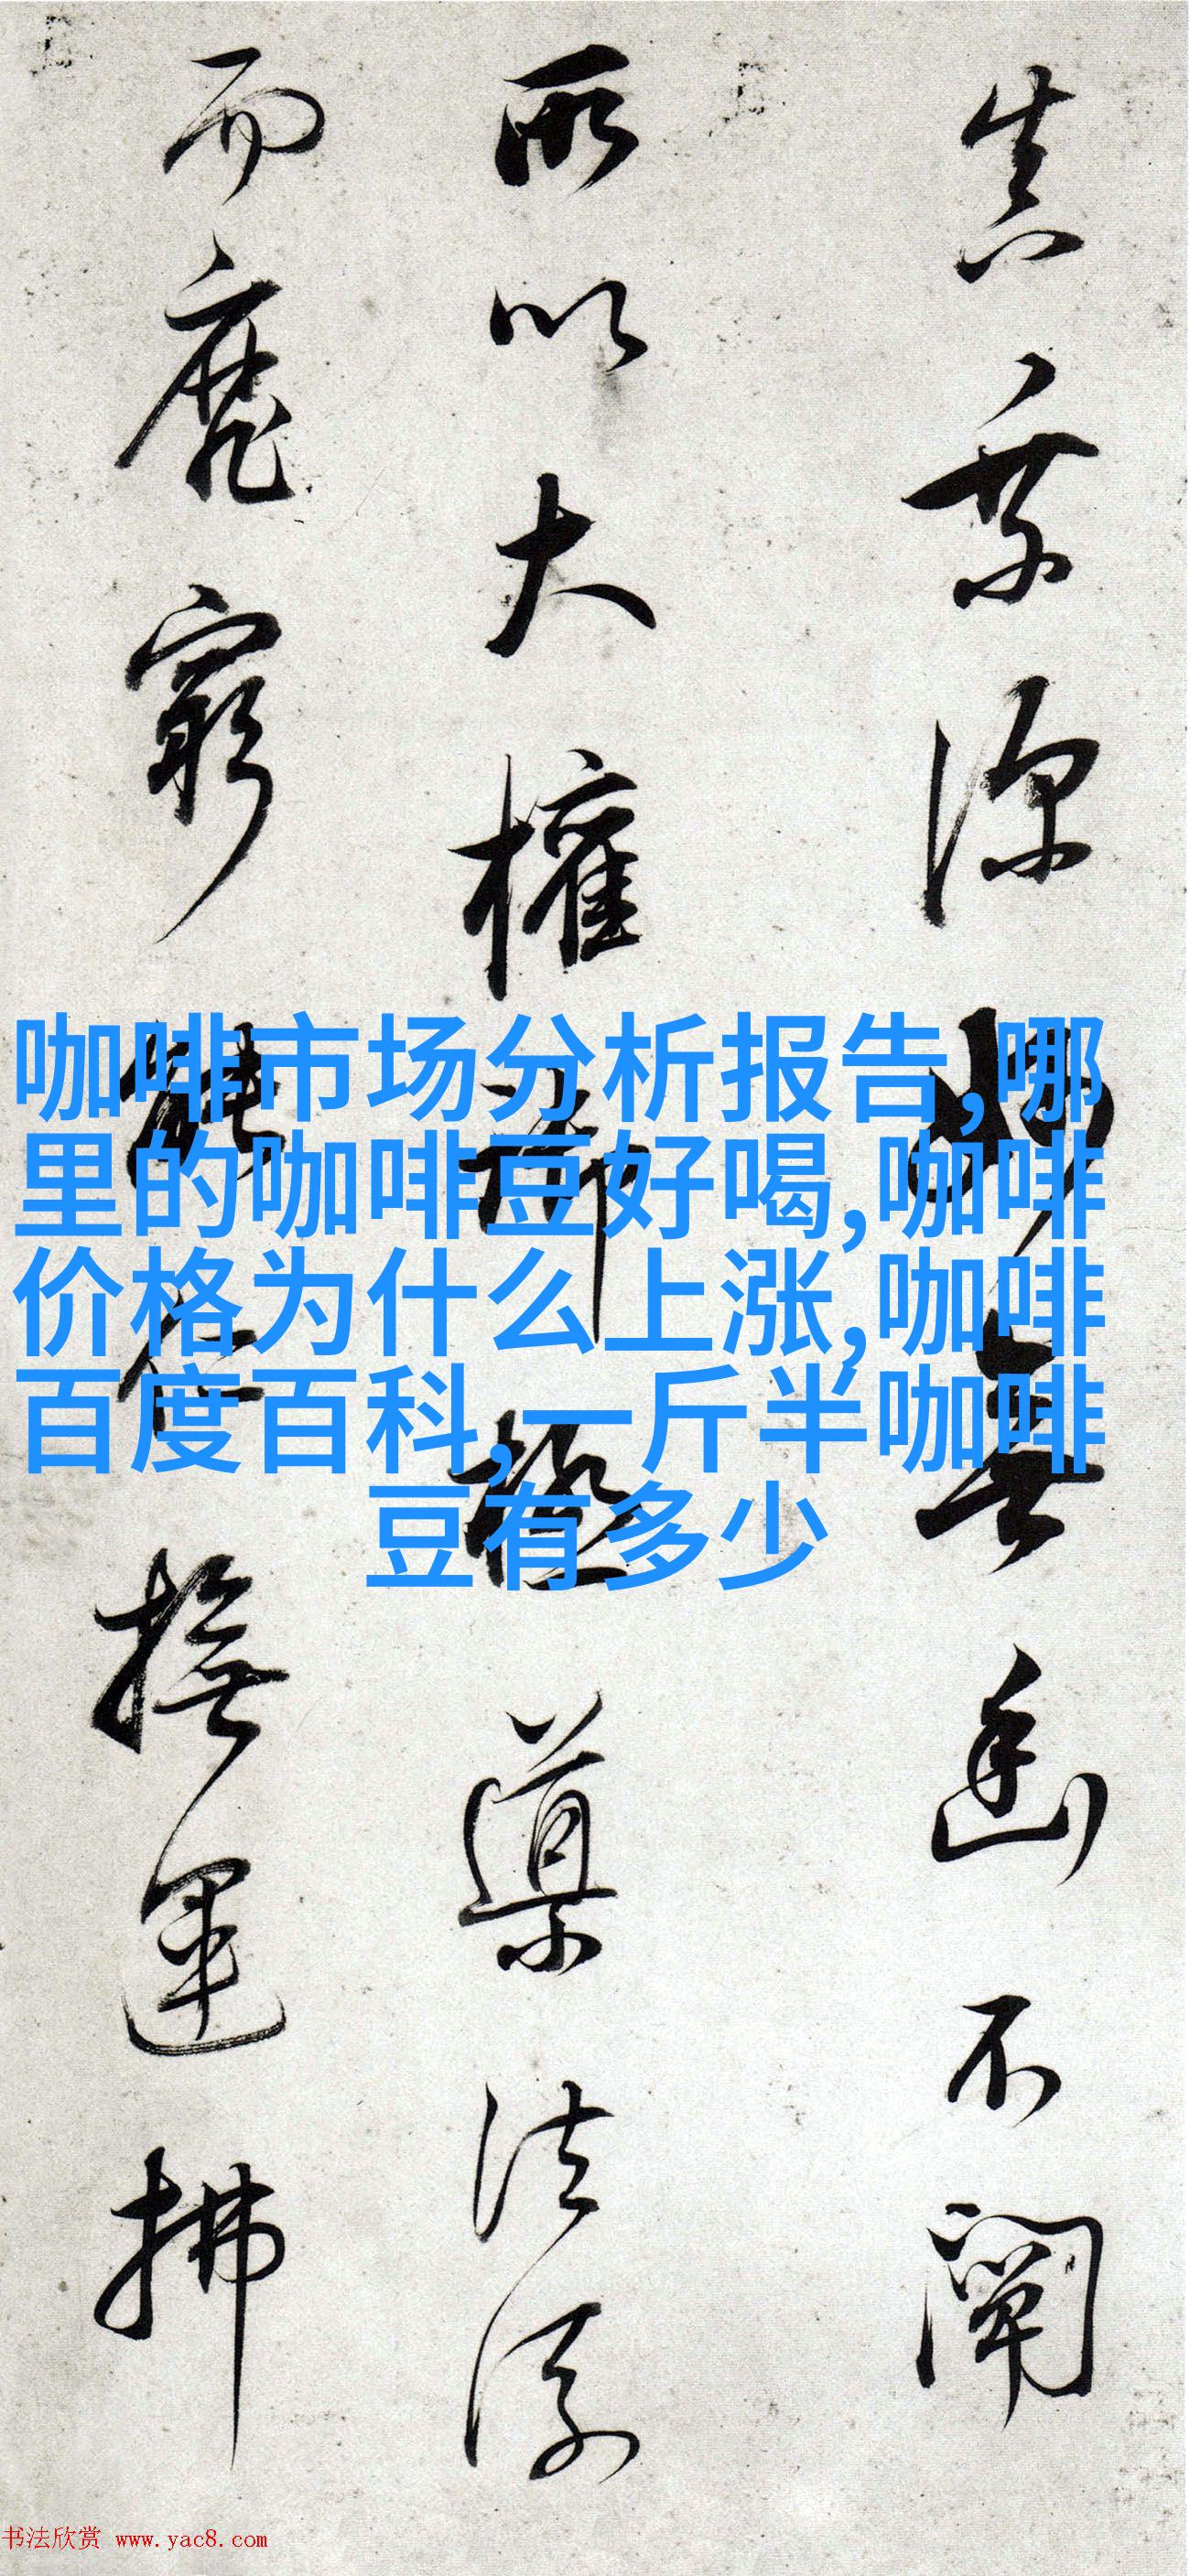 真深妙無幽不闡
所以大權御極導法流
而靡窮能仁撫運拂
咖啡市场分析报告,哪
里的咖啡豆好喝,咖啡
价格为什么上涨,咖啡
百度百科,一斤半咖啡
豆有多少
书法欣赏 www.yac8.com